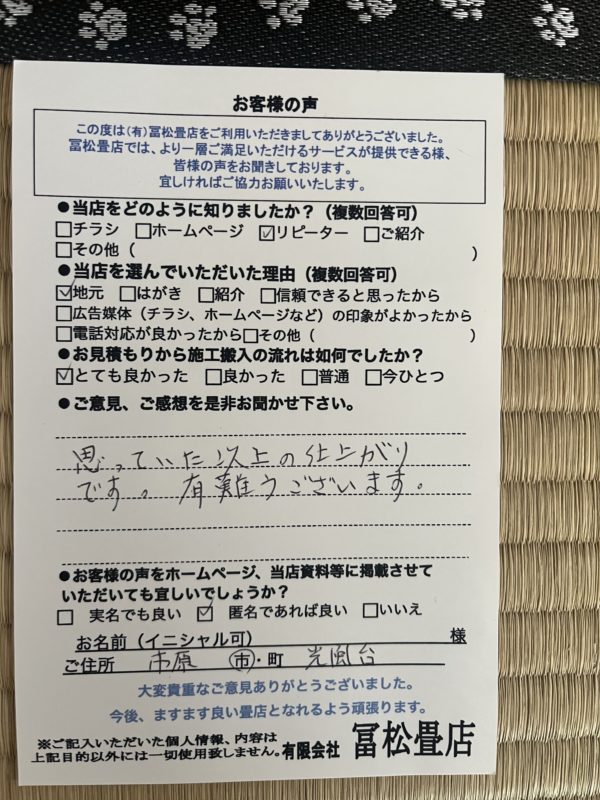 お客様の声
この度は(有)冨松畳店をご利用いただきましてありがとうございました。
冨松畳店では、より一層ご満足いただけるサービスが提供できる様、
皆様の声をお聞きしております。
宜しければご協力お願いいたします。
●当店をどのように知りましたか？（複数回答可）
□チラシ □ホームページ ☑リピーター □ご紹介
□その他（ ）
●当店を選んでいただいた理由（複数回答可）
☑地元 □はがき □紹介 □信頼できると思ったから
□広告媒体（チラシ、ホームページなど）の印象がよかったから
□電話対応が良かったから□その他（ ）
●お見積もりから施工搬入の流れは如何でしたか？
☑とても良かった □良かった □普通 □今ひとつ
●ご意見、ご感想を是非お聞かせ下さい。
思っていた以上の仕上がり
です。有難うございます。
●お客様の声をホームページ、当店資料等に掲載させて
いただいても宜しいでしょうか？
□ 実名でも良い ☑ 匿名であれば良い □いいえ
お名前（イニシャル可） 様
ご住所 市原 市・町 光風台
大変貴重なご意見ありがとうございました。
今後、ますます良い畳店となれるよう頑張ります。
※ご記入いただいた個人情報、内容は
上記目的以外には一切使用致しません。
有限会社 冨松畳店